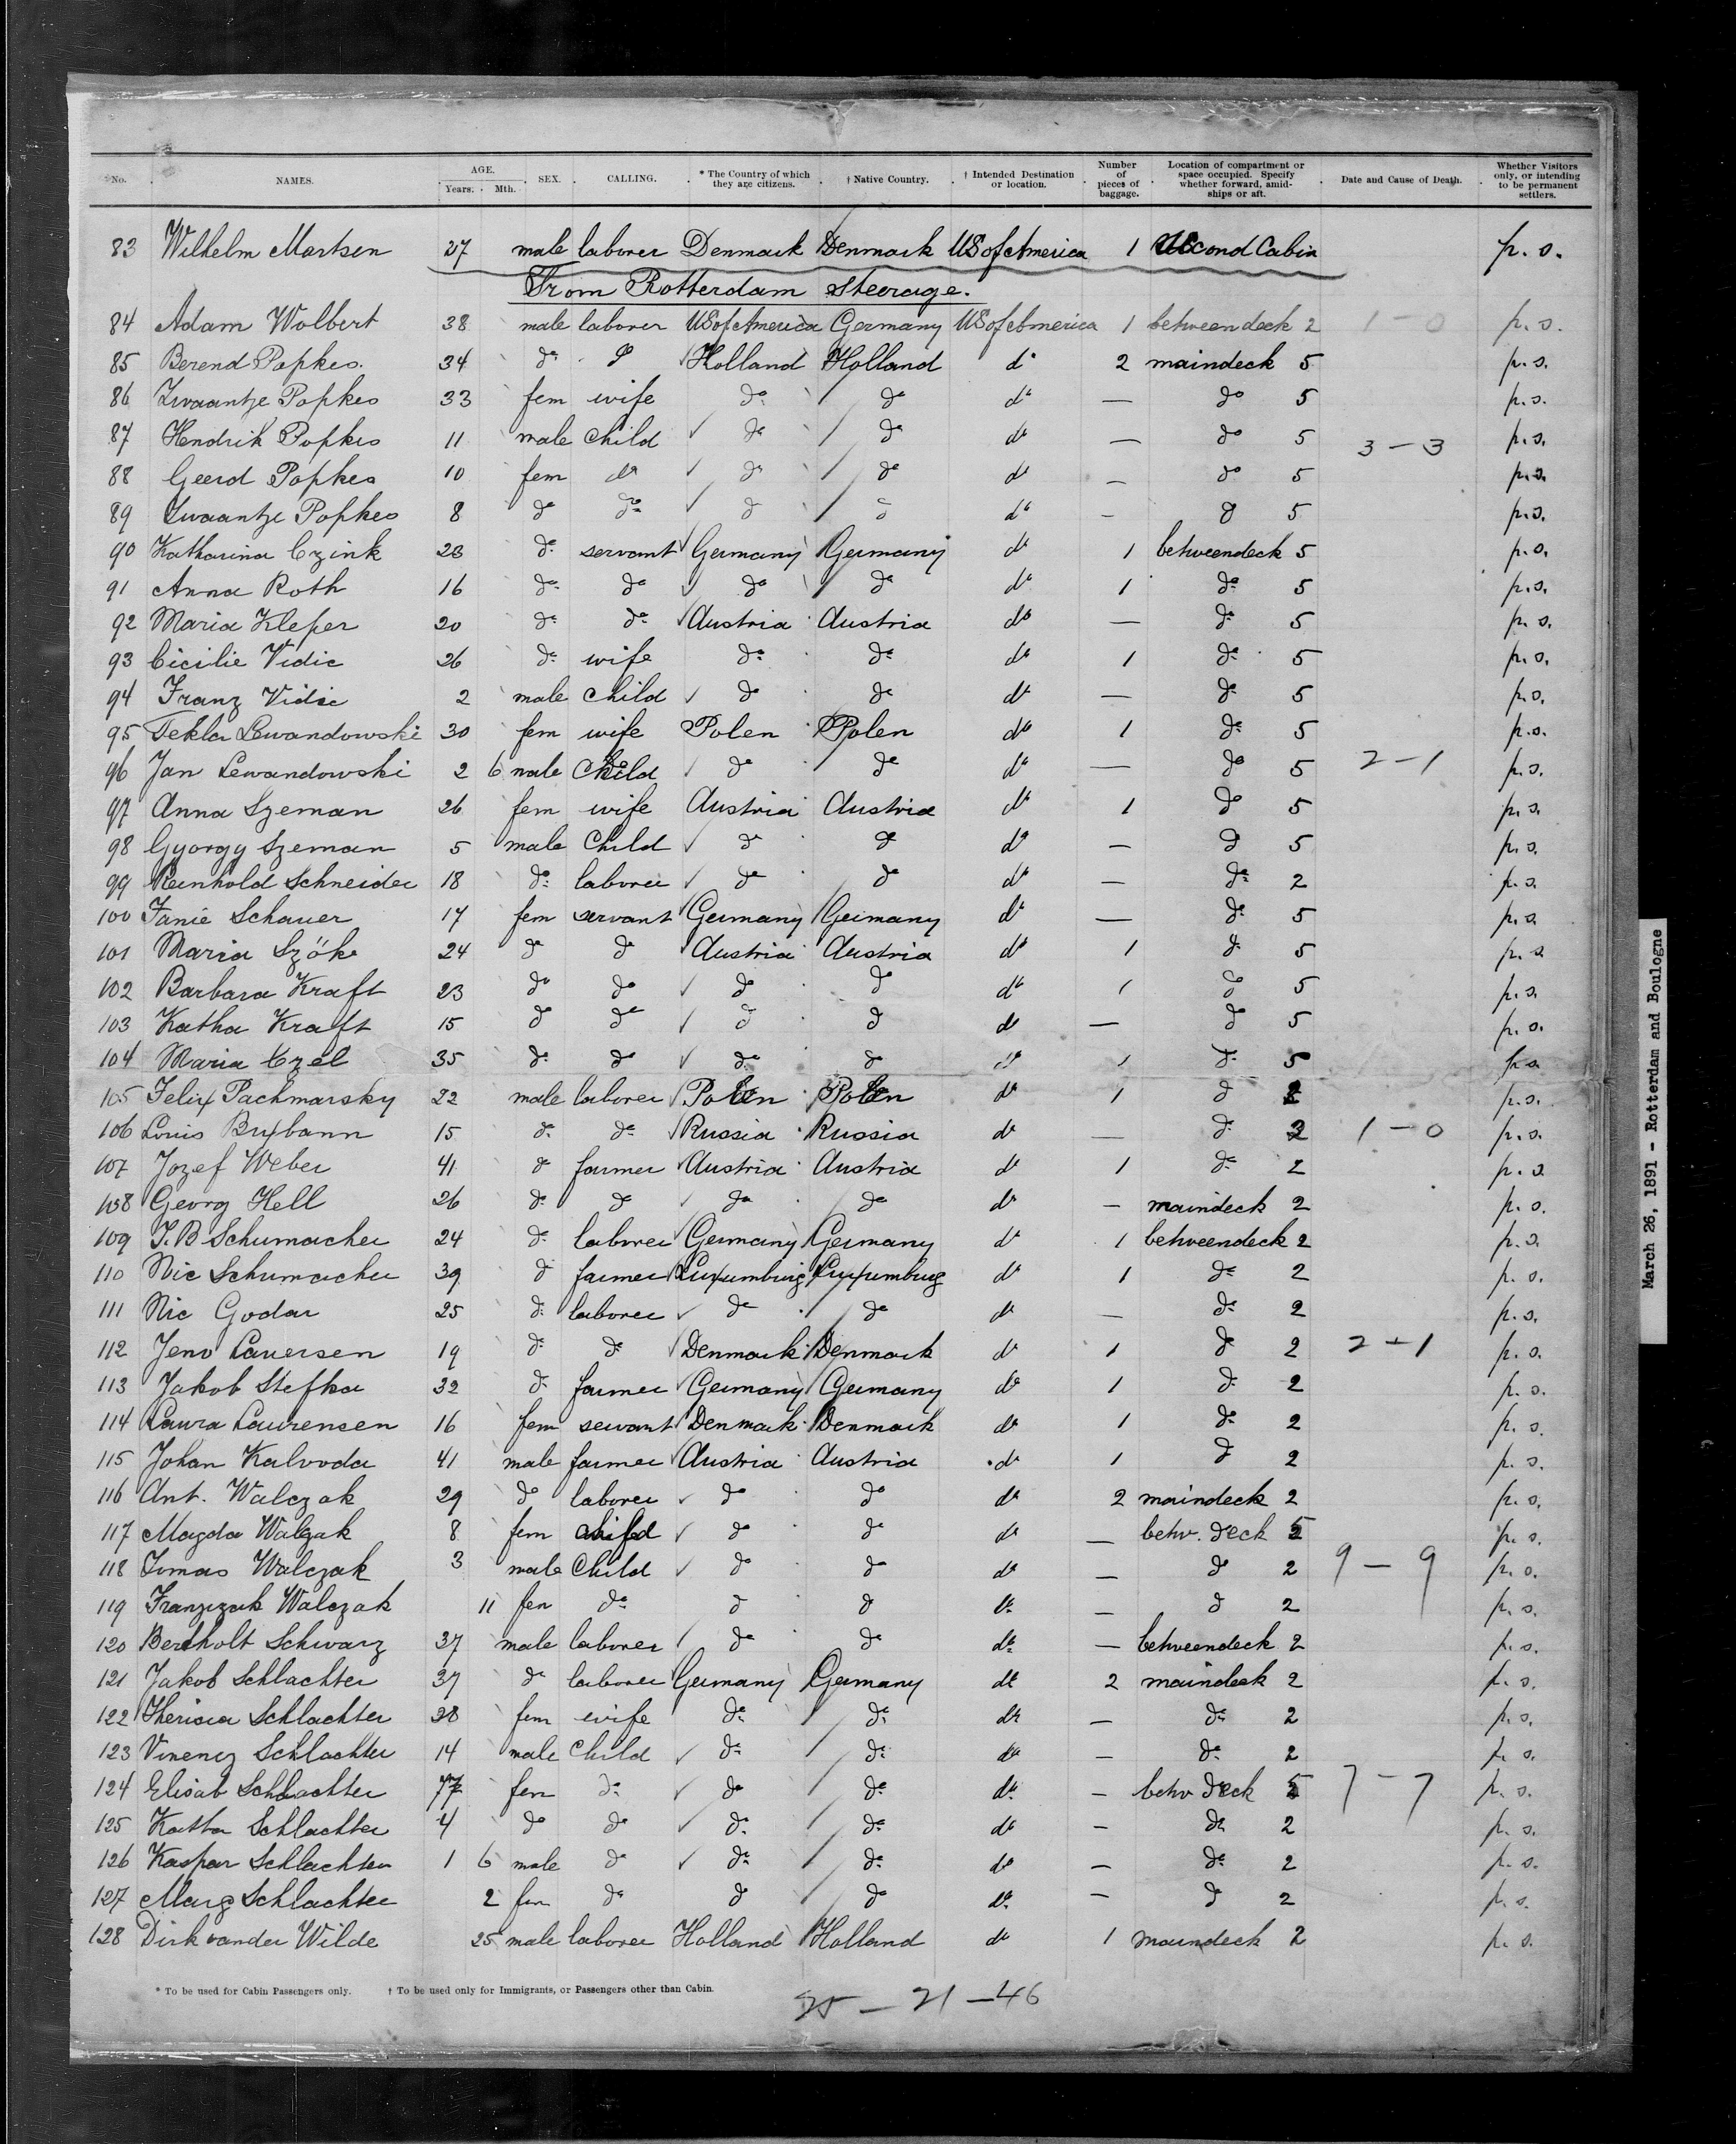 No. NAMES. AGE. Years. Mth. SEX. CALLING. * The Country of which they are citizens. † Native Country. † Intended Destination or location. Number of pieces of baggage. Location of compartment or space occupied. Specify whether forward, amidships or aft. Date and Cause of Death. Whether Visitors only, or intending to be permanent settlers.
83 Wilhelm Martsen 27 male laborer Denmark Denmark US of America 1 Second Cabin p. s.
From Rotterdam Steerage.
84 Adam Wolbert 38 male laborer US of America Germany US of America 1 betweendeck 2 1 - 0 p. s.
85 Berend Popkes. 34 do do Holland Holland do 2 maindeck 5 p. s.
86 Zwaantje Popkes 33 fem wife do do do — do 5 p. s.
87 Hendrik Popkes 11 male child do do do — do 5 3 - 3 p. s.
88 Geerd Popkes 10 fem do do do do — do 5 p. s.
89 Zwaantje Popkes 8 do do do do do — do 5 p. s.
90 Katharina Czink 23 do servant Germany Germany do 1 betweendeck 5 p. s.
91 Anna Roth 16 do do do do do 1 do 5 p. s.
92 Maria Klefer 20 do do Austria Austria do — do 5 p. s.
93 Cicilie Vidic 26 do wife do do do 1 do 5 p. s.
94 Franz Vidic 2 male child do do do — do 5 p. s.
95 Tekla Lewandowski 30 fem wife Polen Polen do 1 do 5 p. s.
96 Jan Lewandowski 2 6 male child do do do — do 5 2 - 1 p. s.
97 Anna Szeman 26 fem wife Austria Austria do 1 do 5 p. s.
98 Gyorgy Szeman 5 male child do do do — do 5 p. s.
99 Reinhold Schneider 18 do laborer do do do — do 2 p. s.
100 Fanie Schauer 17 fem servant Germany Germany do — do 5 p. s.
101 Maria Szöke 24 do do Austria Austria do 1 do 5 p. s.
102 Barbara Kraft 23 do do do do do 1 do 5 p. s.
103 Katha Kraft 15 do do do do do — do 5 p. s.
104 Maria Czel 35 do do do do do 1 do 5 p. s.
105 Felix Pachmarsky 22 male laborer Polen Polen do 1 do 2 p. s.
106 Louis Buxbann 15 do do Russia Russia do — do 2 1 - 0 p. s.
107 Jozef Weber 41 do farmer Austria Austria do 1 do 2 p. s.
108 Georg Hell 26 do do do do do — maindeck 2 p. s.
109 J. B Schumacher 24 do laborer Germany Germany do 1 betweendeck 2 p. s.
110 Nic Schumacher 39 do farmer Luxumburg Luxumburg do 1 do 2 p. s.
111 Nic Godar 25 do laborer do do do — do 2 p. s.
112 Jens Lauersen 19 do do Denmark Denmark do 1 do 2 2 - 1 p. s.
113 Jakob Stefka 32 do farmer Germany Germany do 1 do 2 p. s.
114 Laura Laurensen 16 fem servant Denmark Denmark do 1 do 2 p. s.
115 Johan Kalvoda 41 male farmer Austria Austria do 1 do 2 p. s.
116 Ant. Walczak 29 do laborer do do do 2 maindeck 2 p. s.
117 Magda Walczak 8 fem child do do do — betw. deck 5 p. s.
118 Tomas Walczak 3 male child do do do — do 2 9 - 9 p. s.
119 Franzizak Walczak 11 fem do do do do — do 2 p. s.
120 Bertholt Schwarz 37 male laborer do do do — betweendeck 2 p. s.
121 Jakob Schlachter 37 do laborer Germany Germany do 2 maindeck 2 p. s.
122 Therisia Schlachter 38 fem wife do do do — do 2 p. s.
123 Vinencz Schlachter 14 male child do do do — do 2 p. s.
124 Elisab Schlachter 7 fem do do do do — betw deck 5 7 - 7 p. s.
125 Katha Schlachter 4 do do do do do — do 2 p. s.
126 Kaspar Schlachter 1 6 male do do do do — do 2 p. s.
127 Marg Schlachter 2 fem do do do do — do 2 p. s.
128 Dirk vander Wilde 25 male laborer Holland Holland do 1 maindeck 2 p. s.
* To be used for Cabin Passengers only. † To be used only for Immigrants, or Passengers other than Cabin.
25 - 21 - 46
March 26, 1891 - Rotterdam and Boulogne